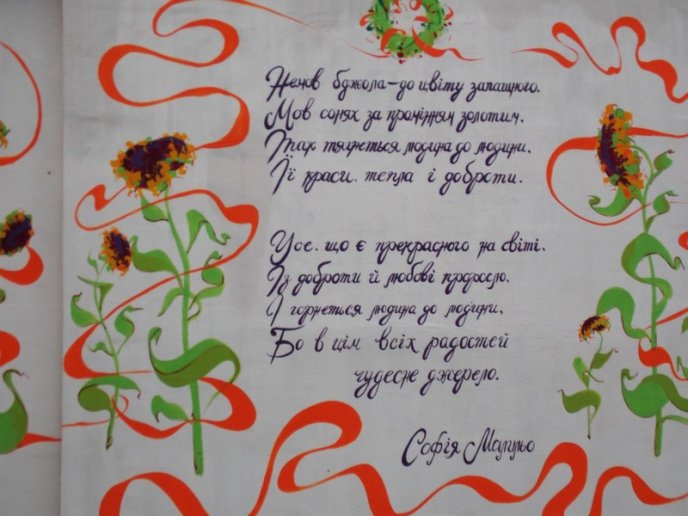 Немов бджола – до цвіту запашного.
Мов сонях за промінням золотим.
Так тягнеться людина до людини,
Її краси. тепла і доброти.
Усе. що є прекрасного на світі.
Із доброти й любові проросло.
І горнеться людина до людини,
Бо в цім всіх радостей
чудесне джерело.
Софія Малильо